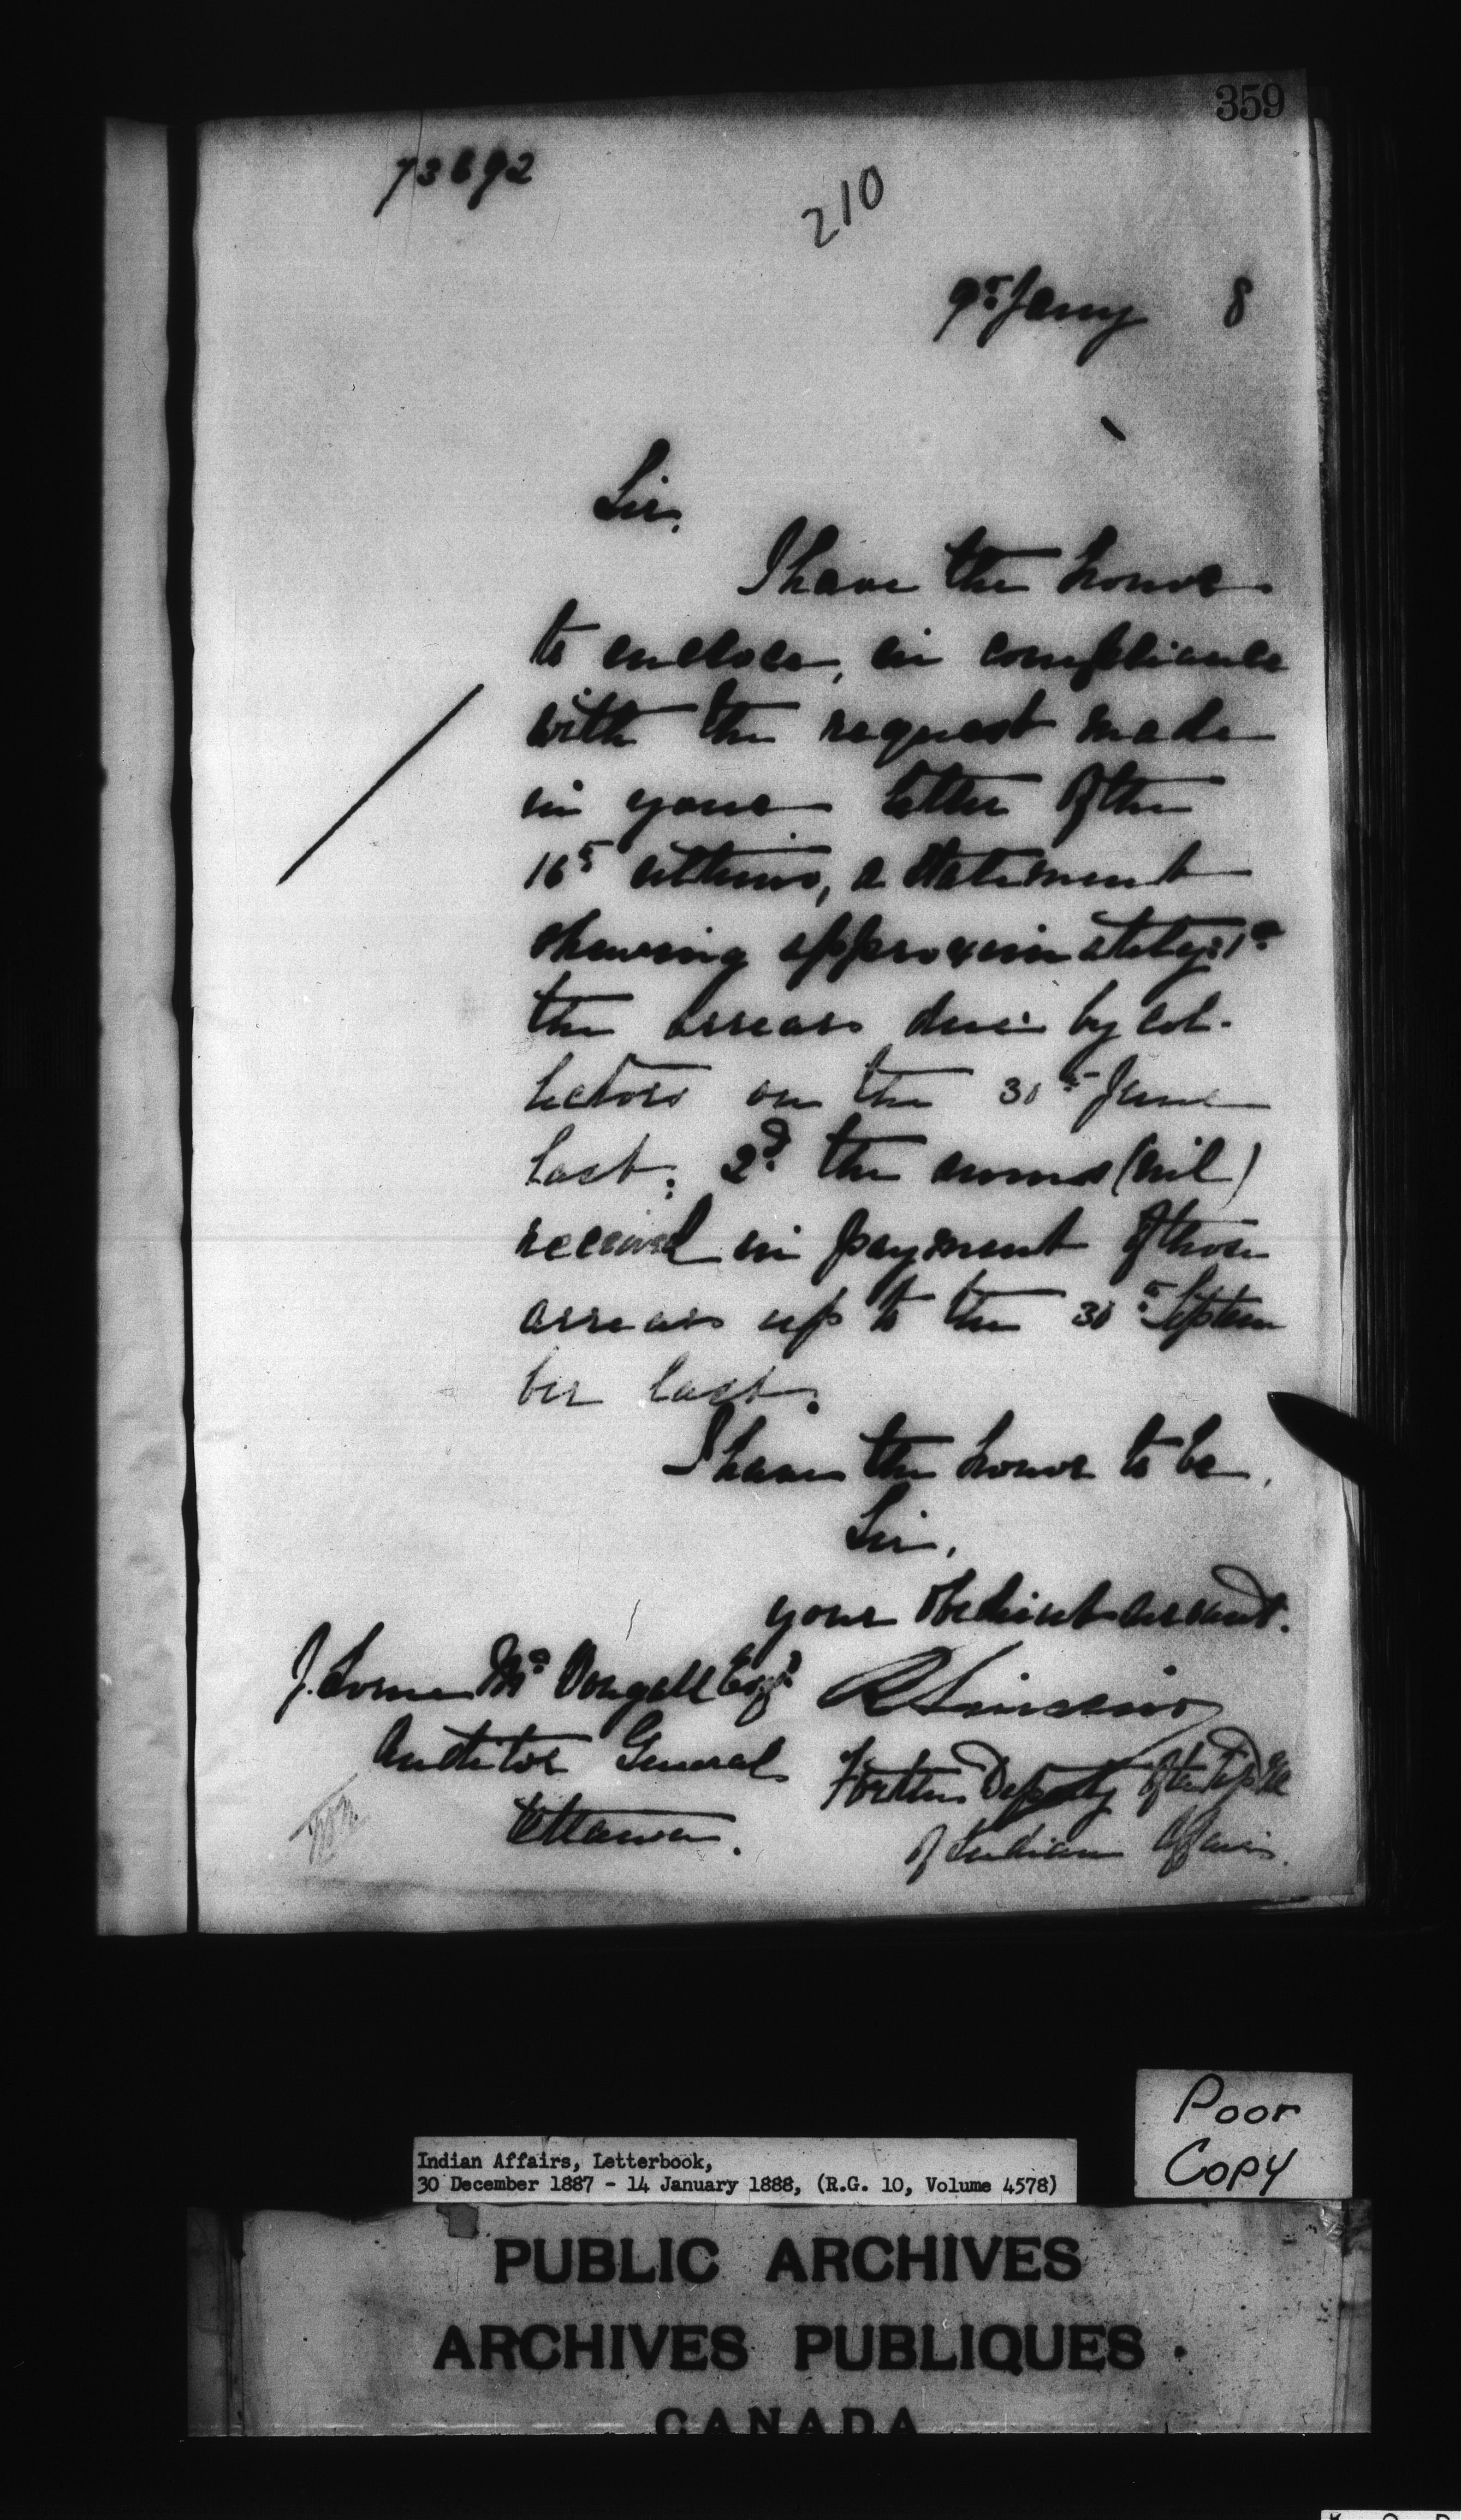 359
73692
210
9th Jany 8
Sir,
I have the honor
to enclose, in compliance
with the request made
in your letter of the
16th ultimo, a statement
shewing approximately: 1st
the arrears due by col-
lectors on the 30th June
last; 2d the sums (nil)
received in payment of those
arrears up to the 30th Septem
ber last.
I have the honor to be,
Sir,
your obedient servant.
J. Lorne McDougall Esqr
R Sinclair
Auditor General
For the Deputy of the
Ottawa.
of Indian Affairs.
Poor
Copy
Indian Affairs, Letterbook,
30 December 1887 - 14 January 1888, (R.G. 10, Volume 4578)
PUBLIC ARCHIVES
ARCHIVES PUBLIQUES
CANADA